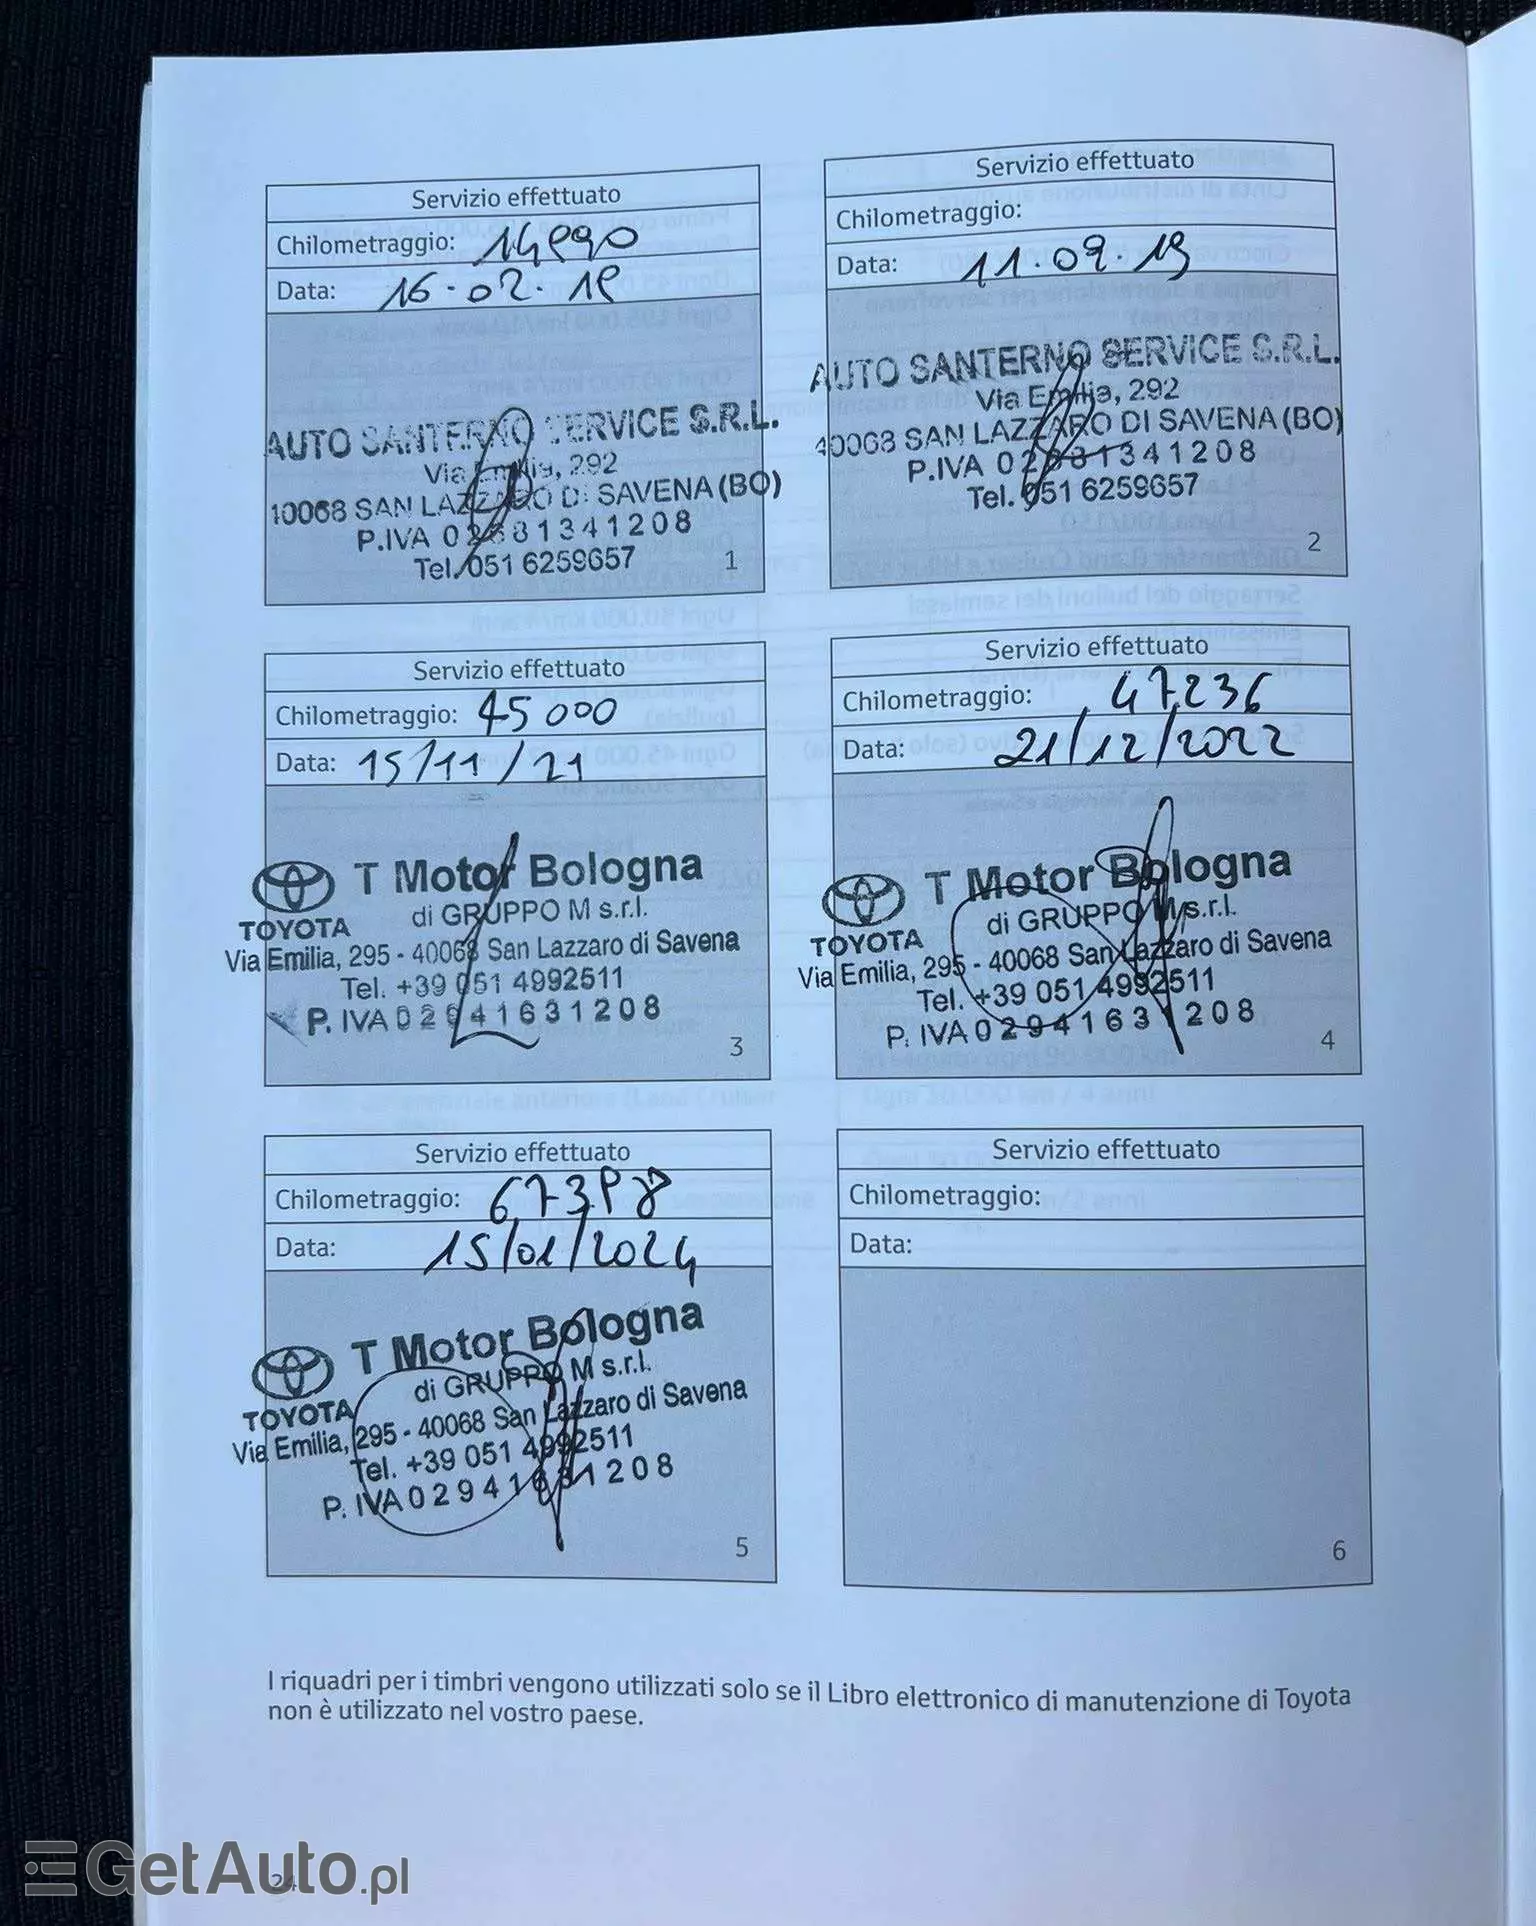 Servizio effettuato
Chilometraggio:
Data: 16-02-18
AUTO SANTERNO SERVICE S.R.L.
Via Emilia, 292
40068 SAN LAZZARO DI SAVENA (BO)
P.IVA 02881341208
Tel. 051 6259657
1
Servizio effettuato
Chilometraggio:
Data: 11.02.19
AUTO SANTERNO SERVICE S.R.L.
Via Emilia, 292
40068 SAN LAZZARO DI SAVENA (BO)
P.IVA 02881341208
Tel. 051 6259657
2
Servizio effettuato
Chilometraggio: 45000
Data: 15/11/21
T Motor Bologna
di GRUPPO M s.r.l.
TOYOTA
Via Emilia, 295 - 40068 San Lazzaro di Savena
Tel. +39 051 4992511
P. IVA 02941631208
3
Servizio effettuato
Chilometraggio: 47.236
Data: 21/12/2022
T Motor Bologna
di GRUPPO M s.r.l.
TOYOTA
Via Emilia, 295 - 40068 San Lazzaro di Savena
Tel. +39 051 4992511
P. IVA 02941631208
4
Servizio effettuato
Chilometraggio:
Data: 15/01/2024
T Motor Bologna
di GRUPPO M s.r.l.
TOYOTA
Via Emilia, 295 - 40068 San Lazzaro di Savena
Tel. +39 051 4992511
P. IVA 02941631208
5
Servizio effettuato
Chilometraggio:
Data:
6
I riquadri per i timbri vengono utilizzati solo se il Libro elettronico di manutenzione di Toyota
non è utilizzato nel vostro paese.
24
GetAuto.pl